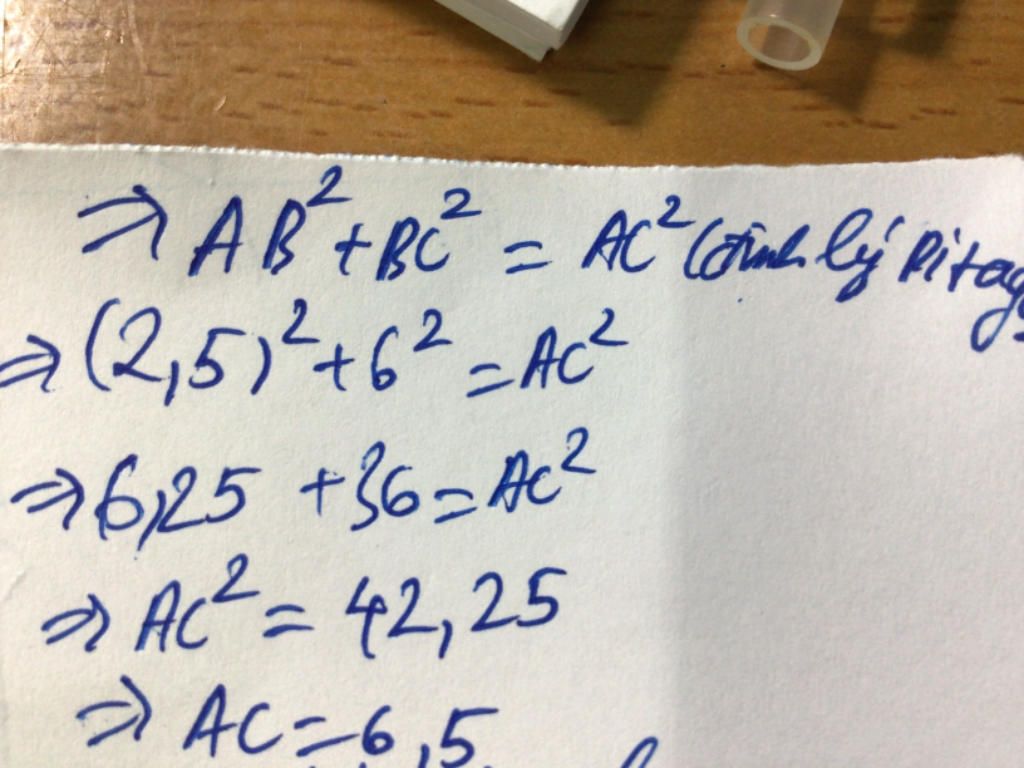 ⇒ AB² + BC² = AC² (định lý Pitag
⇒ (2,5)² + 6² = AC²
⇒ 6,25 + 36 = AC²
⇒ AC² = 42,25
⇒ AC = 6,5